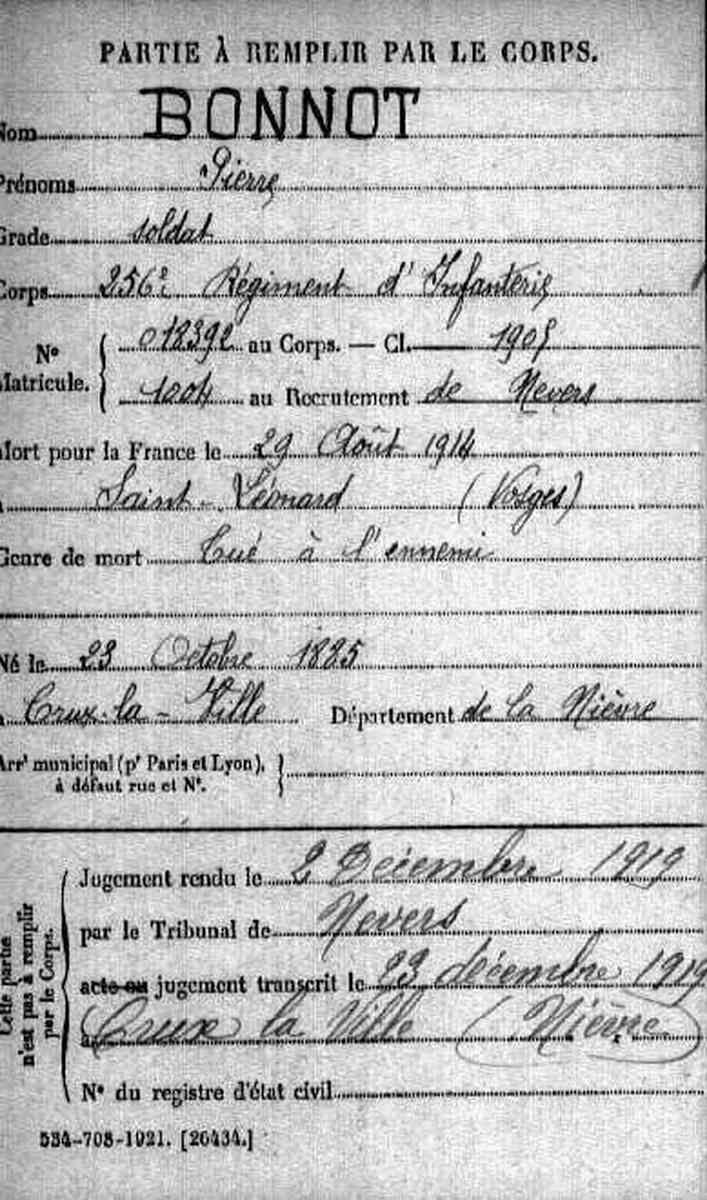 PARTIE À REMPLIR PAR LE CORPS.
Nom BONNOT
Prénoms Pierre
Grade soldat
Corps 256e Régiment d'Infanterie
No Matricule. { 018392 au Corps. — Cl. 1905
1004 au Recrutement de Nevers
Mort pour la France le 29 Août 1914
à Saint-Léonard (Vosges)
Genre de mort Tué à l'ennemi
Né le 23 Octobre 1885
à Crux-la-Ville Département de la Nièvre
Arrt municipal (pr Paris et Lyon), }
à défaut rue et No.
Cette partie
n'est pas à remplir
par le Corps.
Jugement rendu le 2 Décembre 1919
par le Tribunal de Nevers
acte ou jugement transcrit le 23 décembre 1919
à Crux la Ville (Nièvre)
No du registre d'état civil
534-708-1921. [26434.]